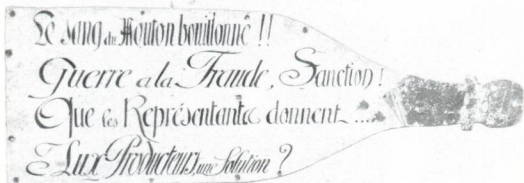 Le sang du Mouton bouillonne !!
Guerre a la Fraude, Sanction !
Que les Représentants donnent ....
Aux Producteurs, une Solution ?